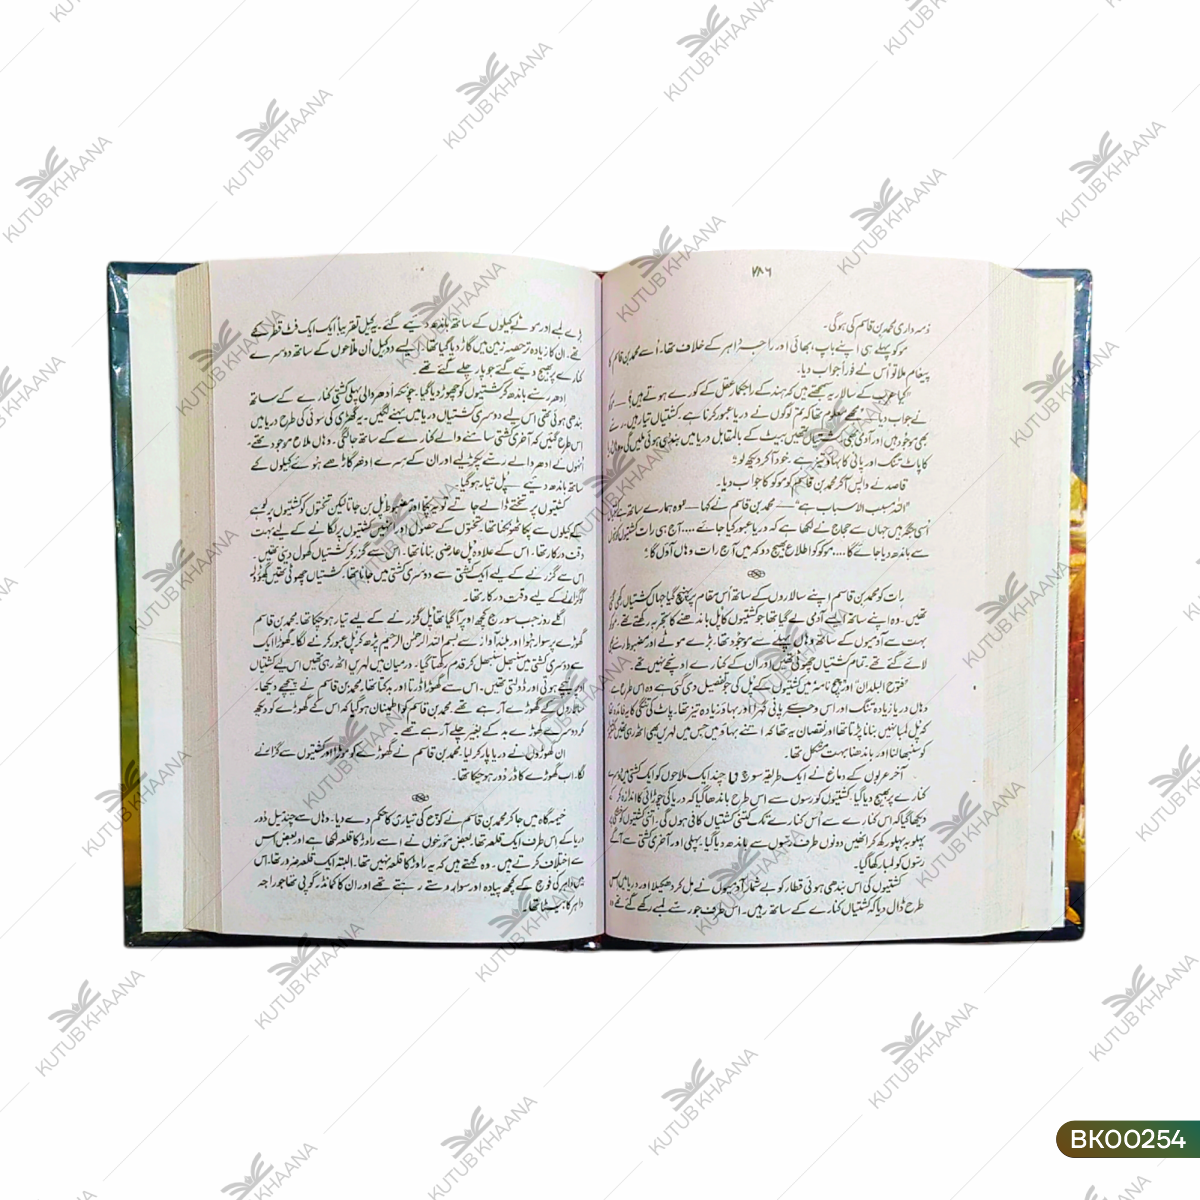 ۲۸۶
ذمہ داری محمد بن قاسم کی ہوگی۔
موکو پہلے ہی اپنے باپ، بھائی اور راجہ داہر کے خلاف تھا۔ اُسے محمد بن قاسم کا
پیغام ملا تو اُس نے فوراً جواب دیا۔
"کیا عرب کے سالار یہ سمجھتے ہیں کہ ہند کے راجکمار عقل کے کورے ہوتے ہیں؟
نے جواب دیا معلوم تھا کہ تم لوگوں نے دریا عبور کرنا ہے کشتیاں تیار ہیں
بھی موجود ہیں اور آدمی بھی کشتیاں تمہیں بیٹ کے بالمقابل دریا میں بندھی ہوئی ملیں گی وہاں
کا پاٹ تنگ اور پانی کا بہاؤ تیز ہے۔ خود آ کر دیکھ لو"
قاصد نے واپس آ کر محمد بن قاسم کو موکو کا جواب دیا۔
"اللہ مسبب الاسباب ہے" — محمد بن قاسم نے کہا — "وہ ہمارے ساتھ ہے
اُسی جگہ ہیں جہاں سے حجاج نے لکھا ہے کہ دریا عبور کیا جائے .... آج ہی رات کشتیوں کو
سے باندھ دیا جائے گا .... موکو کو اطلاع بھیج دو کہ میں آج رات وہاں آؤں گا"
رات کو محمد بن قاسم اپنے سالاروں کے ساتھ اُس مقام پر پہنچ گیا جہاں کشتیاں
تھیں۔ وہ اپنے ساتھ ایسے آدمی لے گیا تھا جو کشتیوں کا پُل باندھنے کا تجربہ رکھتے تھے۔
بہت سے آدمیوں کے ساتھ وہاں پہلے سے موجود تھا۔ بڑے موٹے اور مضبوط رسے بھی
لائے گئے تھے۔ تمام کشتیاں چھوٹی تھیں اور ان کے کنارے اونچے نہیں تھے۔
"فتوح البلدان" اور چچ نامہ میں کشتیوں کے پُل کی جو تفصیل دی گئی ہے وہ اس طرح ہے
وہاں دریا زیادہ تنگ اور اس وجہ سے پانی گہرا اور بہاؤ زیادہ تیز تھا۔ پاٹ کی تنگی کا یہ فائدہ تھا
کہ پُل لمبا نہیں بنانا پڑتا تھا اور نقصان یہ تھا کہ اتنے بہاؤ میں جس میں لہریں بھی اٹھ رہی تھیں
کو سنبھالنا اور باندھنا بہت مشکل تھا۔
آخر عربوں کے دماغ نے ایک طریقہ سوچ لیا چند ایک ملاحوں کو ایک کشتی میں دوسرے
کنارے پر بھیج دیا گیا۔ کشتیوں کو رسوں سے اس طرح باندھا گیا کہ دریا کی چوڑائی کا اندازہ کر کے
دیکھا گیا کہ اس کنارے سے اُس کنارے تک کتنی کشتیاں کافی ہوں گی۔ اتنی کشتیوں کو
پہلو بہ پہلو رکھ کر انھیں دونوں طرف رسوں سے باندھ دیا گیا۔ پہلی اور آخری کشتی سے آگے
رسوں کو لمبا رکھا گیا۔
کشتیوں کی اس بندھی ہوئی قطار کو بے شمار آدمیوں نے مل کر دھکیلا اور دریا میں اس
طرح ڈال دیا کہ کشتیاں کنارے کے ساتھ رہیں۔ اس طرف جو رسے لمبے رکھے گئے تھے وہ
بڑے لمبے اور موٹے کیلوں کے ساتھ باندھ دیئے گئے۔ یہ کیل تقریباً ایک ایک فٹ قطر کے
تھے۔ ان کا زیادہ تر حصہ زمین میں گاڑ دیا گیا تھا۔ ایسے دو کیل اُن ملاحوں کے ساتھ دوسرے
کنارے پر بھیج دیئے گئے جو پار چلے گئے تھے۔
ادھر رسے باندھ کر کشتیوں کو چھوڑ دیا گیا۔ چونکہ ادھر والی پہلی کشتی کنارے کے ساتھ
بندھی ہوئی تھی اس لیے دوسری کشتیاں دریا میں بہنے لگیں۔ یہ گھڑی کی سوئی کی طرح دریا میں
اس طرح گئیں کہ آخری کشتی سامنے والے کنارے کے ساتھ جا لگی۔ وہاں ملاح موجود تھے۔
اُنہوں نے ادھر والے رسے پکڑ لیے اور ان کے سرے اُدھر گاڑھے ہوئے کیلوں کے
ساتھ باندھ دیئے — پُل تیار ہو گیا۔
کشتیوں پر تختے ڈالے جاتے تو یہ پکا اور مضبوط پُل بن جاتا لیکن تختوں کو کشتیوں پر لمبے
کیلوں سے پکا ٹھونکنا تھا۔ تختوں کے حصول اور انھیں کشتیوں پر لگانے کے لیے بہت
وقت درکار تھا۔ اس کے علاوہ پُل عارضی بنانا تھا۔ اس سے گزر کر کشتیاں کھول دینی تھیں۔
اس سے گزرنے کے لیے ایک کشتی سے دوسری کشتی میں جانا تھا۔ کشتیاں چھوٹی تھیں گھوڑے
گزارنے کے لیے وقت درکار تھا۔
اگلے روز جب سورج کچھ اوپر آ گیا تھا پُل گزرنے کے لیے تیار ہو چکا تھا۔ محمد بن قاسم
گھوڑے پر سوار ہوا اور بلند آواز سے بسم اللہ الرحمٰن الرحیم پڑھ کر پُل عبور کرنے لگا۔ گھوڑا ایک
سے دوسری کشتی میں سنبھل سنبھل کر قدم رکھتا گیا۔ درمیان میں لہریں اٹھ رہی تھیں اس لیے کشتیاں
اوپر نیچے ہوتی اور ڈولتی تھیں۔ اس سے گھوڑا ڈرتا اور بدکتا تھا۔ محمد بن قاسم نے پیچھے دیکھا۔
سالاروں کے گھوڑے آ رہے تھے۔ محمد بن قاسم کو اطمینان ہو گیا کہ اس کے گھوڑے کو دیکھ
کر دوسرے گھوڑے بدکے بغیر چلے آ رہے تھے۔
ان گھوڑوں نے دریا پار کر لیا۔ محمد بن قاسم نے گھوڑے کو موڑا اور کشتیوں سے گزارنے
لگا۔ اب گھوڑے کا ڈر دُور ہو چکا تھا۔
خیمہ گاہ میں جا کر محمد بن قاسم نے کوچ کی تیاری کا حکم دے دیا۔ وہاں سے چند میل دُور
دریا کے اس طرف ایک قلعہ تھا۔ بعض مؤرخوں نے اسے راوڑ کا قلعہ لکھا ہے اور بعض اس
سے اختلاف کرتے ہیں۔ وہ کہتے ہیں کہ یہ راوڑ کا قلعہ نہیں تھا۔ البتہ ایک قلعہ ضرور تھا۔ اس
میں داہر کی فوج کے کچھ پیادہ اور سوار دستے رہتے تھے اور ان کا کمانڈر گوپی تھا جو راجہ
داہر کا بیٹا تھا۔
KUTUB KHAANA
BK00254